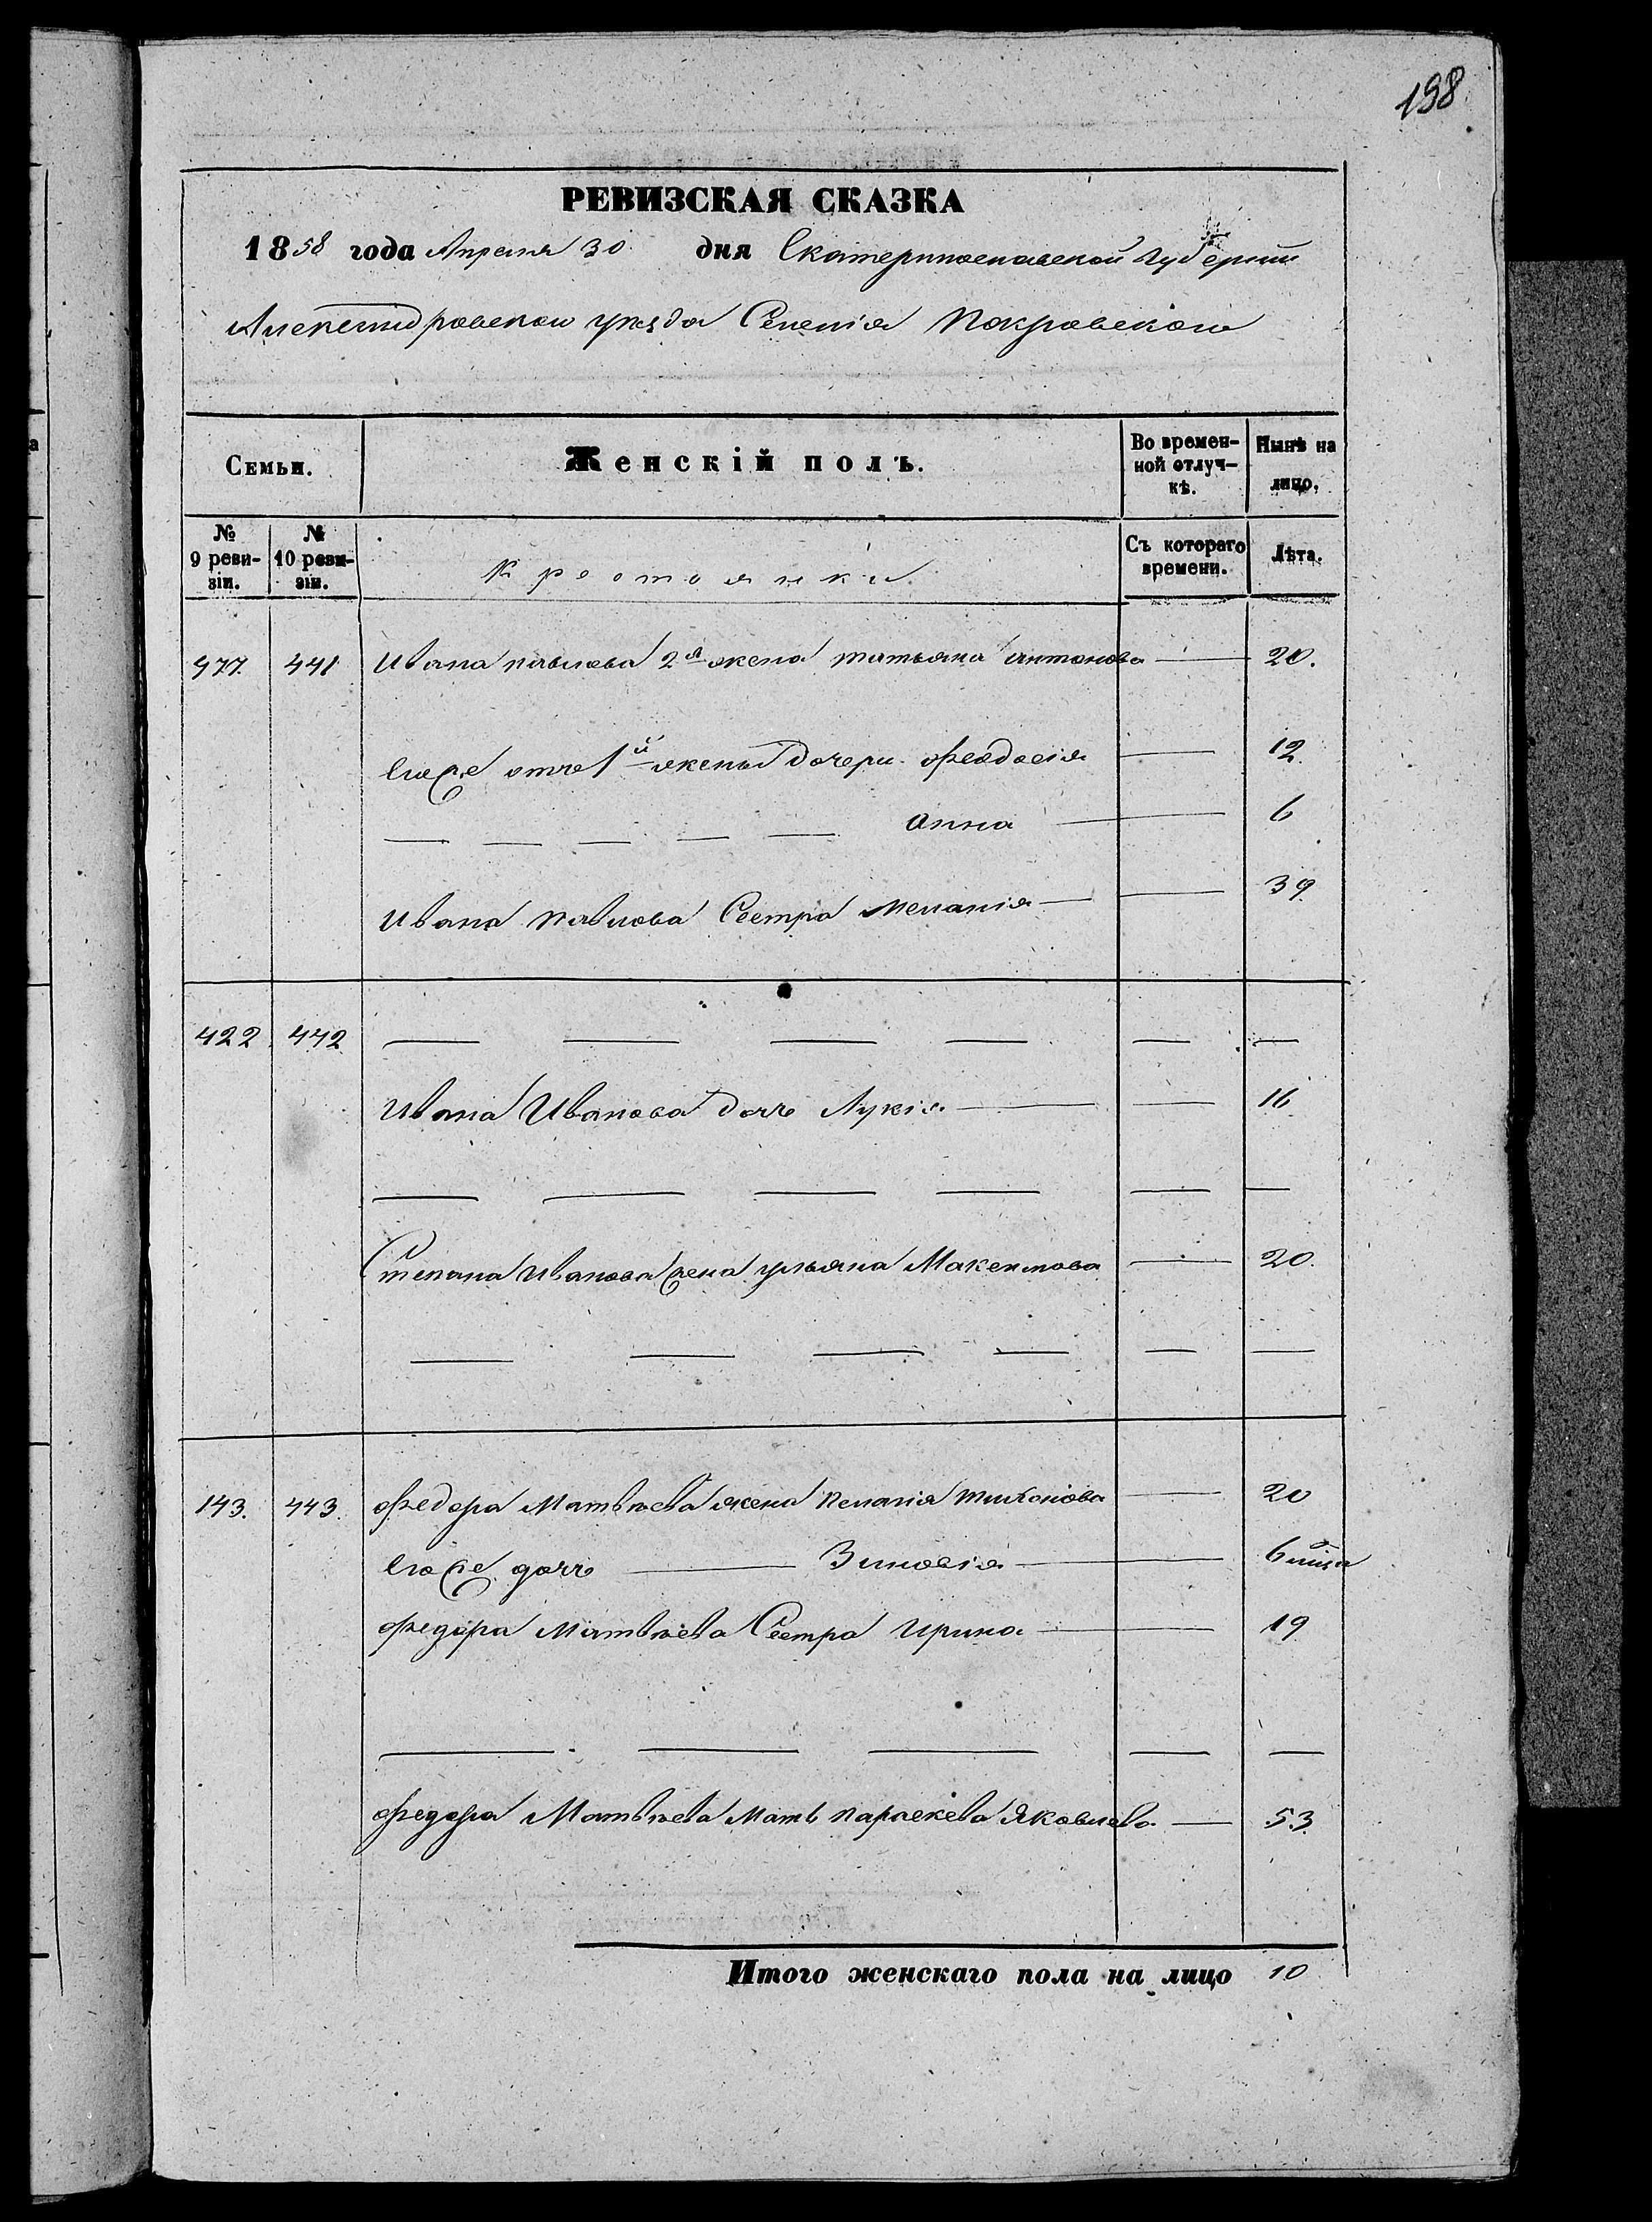 198
РЕВИЗСКАЯ СКАЗКА
1858 года Апреля 30 дня Екатеринославской Губернии
Александровскаго уезда Селенія Покровскаго
Семьи. Женскій полъ. Во времен-ной отлуч-кѣ. Нынѣ на лицо.
№ 9 реви-зіи. № 10 реви-зіи. Крестьянки Съ котораго времени. Лѣта.
477. 441 Ивана павлова 2я жена татьяна антонова — 20.
егоже отъ 1й жены дочери феодосія — 12.
— — — — — анна — 6
Ивана павлова Сестра меланія — — 39
422 442 — — — — — —
Ивана Иванова дочь Лукія — — 16
— — — — — —
Степана Иванова жена ульяна Максимова — 20.
— — — — — —
143. 443. федора Матвѣева жена пелагія тихонова — 20
егоже дочь — Зиновія — 6 мѣся
федора Матвѣева Сестра Ирина — 19
— — — — —
федора Матвѣева мать параскева Яковлева — 53.
Итого женскаго пола на лицо 10